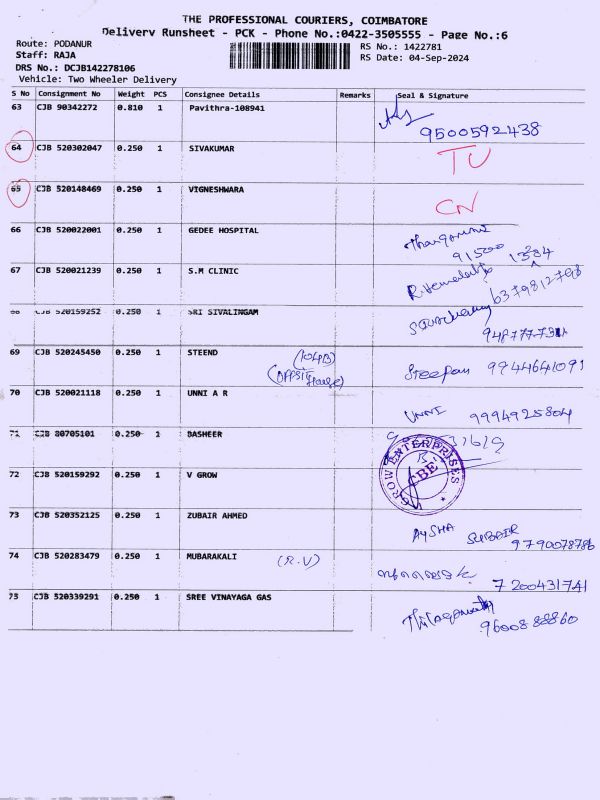 THE PROFESSIONAL COURIERS, COIMBATORE
Delivery Runsheet - PCK - Phone No.:0422-3505555 - Page No.:6
Route: PODANUR
Staff: RAJA
DRS No.: DCJB142278106
Vehicle: Two Wheeler Delivery
RS No.: 1422781
RS Date: 04-Sep-2024
S No Consignment No Weight PCS Consignee Details Remarks Seal & Signature
63 CJB 90342272 0.810 1 Pavithra-108941
9500592438
64 CJB 520302047 0.250 1 SIVAKUMAR TU
65 CJB 520148469 0.250 1 VIGNESHWARA CN
66 CJB 520022001 0.250 1 GEDEE HOSPITAL
67 CJB 520021239 0.250 1 S.M CLINIC
6379812798
68 CJB 520159252 0.250 1 SRI SIVALINGAM
69 CJB 520245450 0.250 1 STEEND (104B) Steepan 9944641091
(OPPSIT House)
70 CJB 520021118 0.250 1 UNNI A R UNNI 9994925804
71 CJB 80705101 0.250 1 BASHEER
72 CJB 520159292 0.250 1 V GROW GROW ENTERPRISES CBE
73 CJB 520352125 0.250 1 ZUBAIR AHMED AYSHA SUBAIR
9790078786
74 CJB 520283479 0.250 1 MUBARAKALI (R.V)
7200431741
75 CJB 520339291 0.250 1 SREE VINAYAGA GAS
9600888860